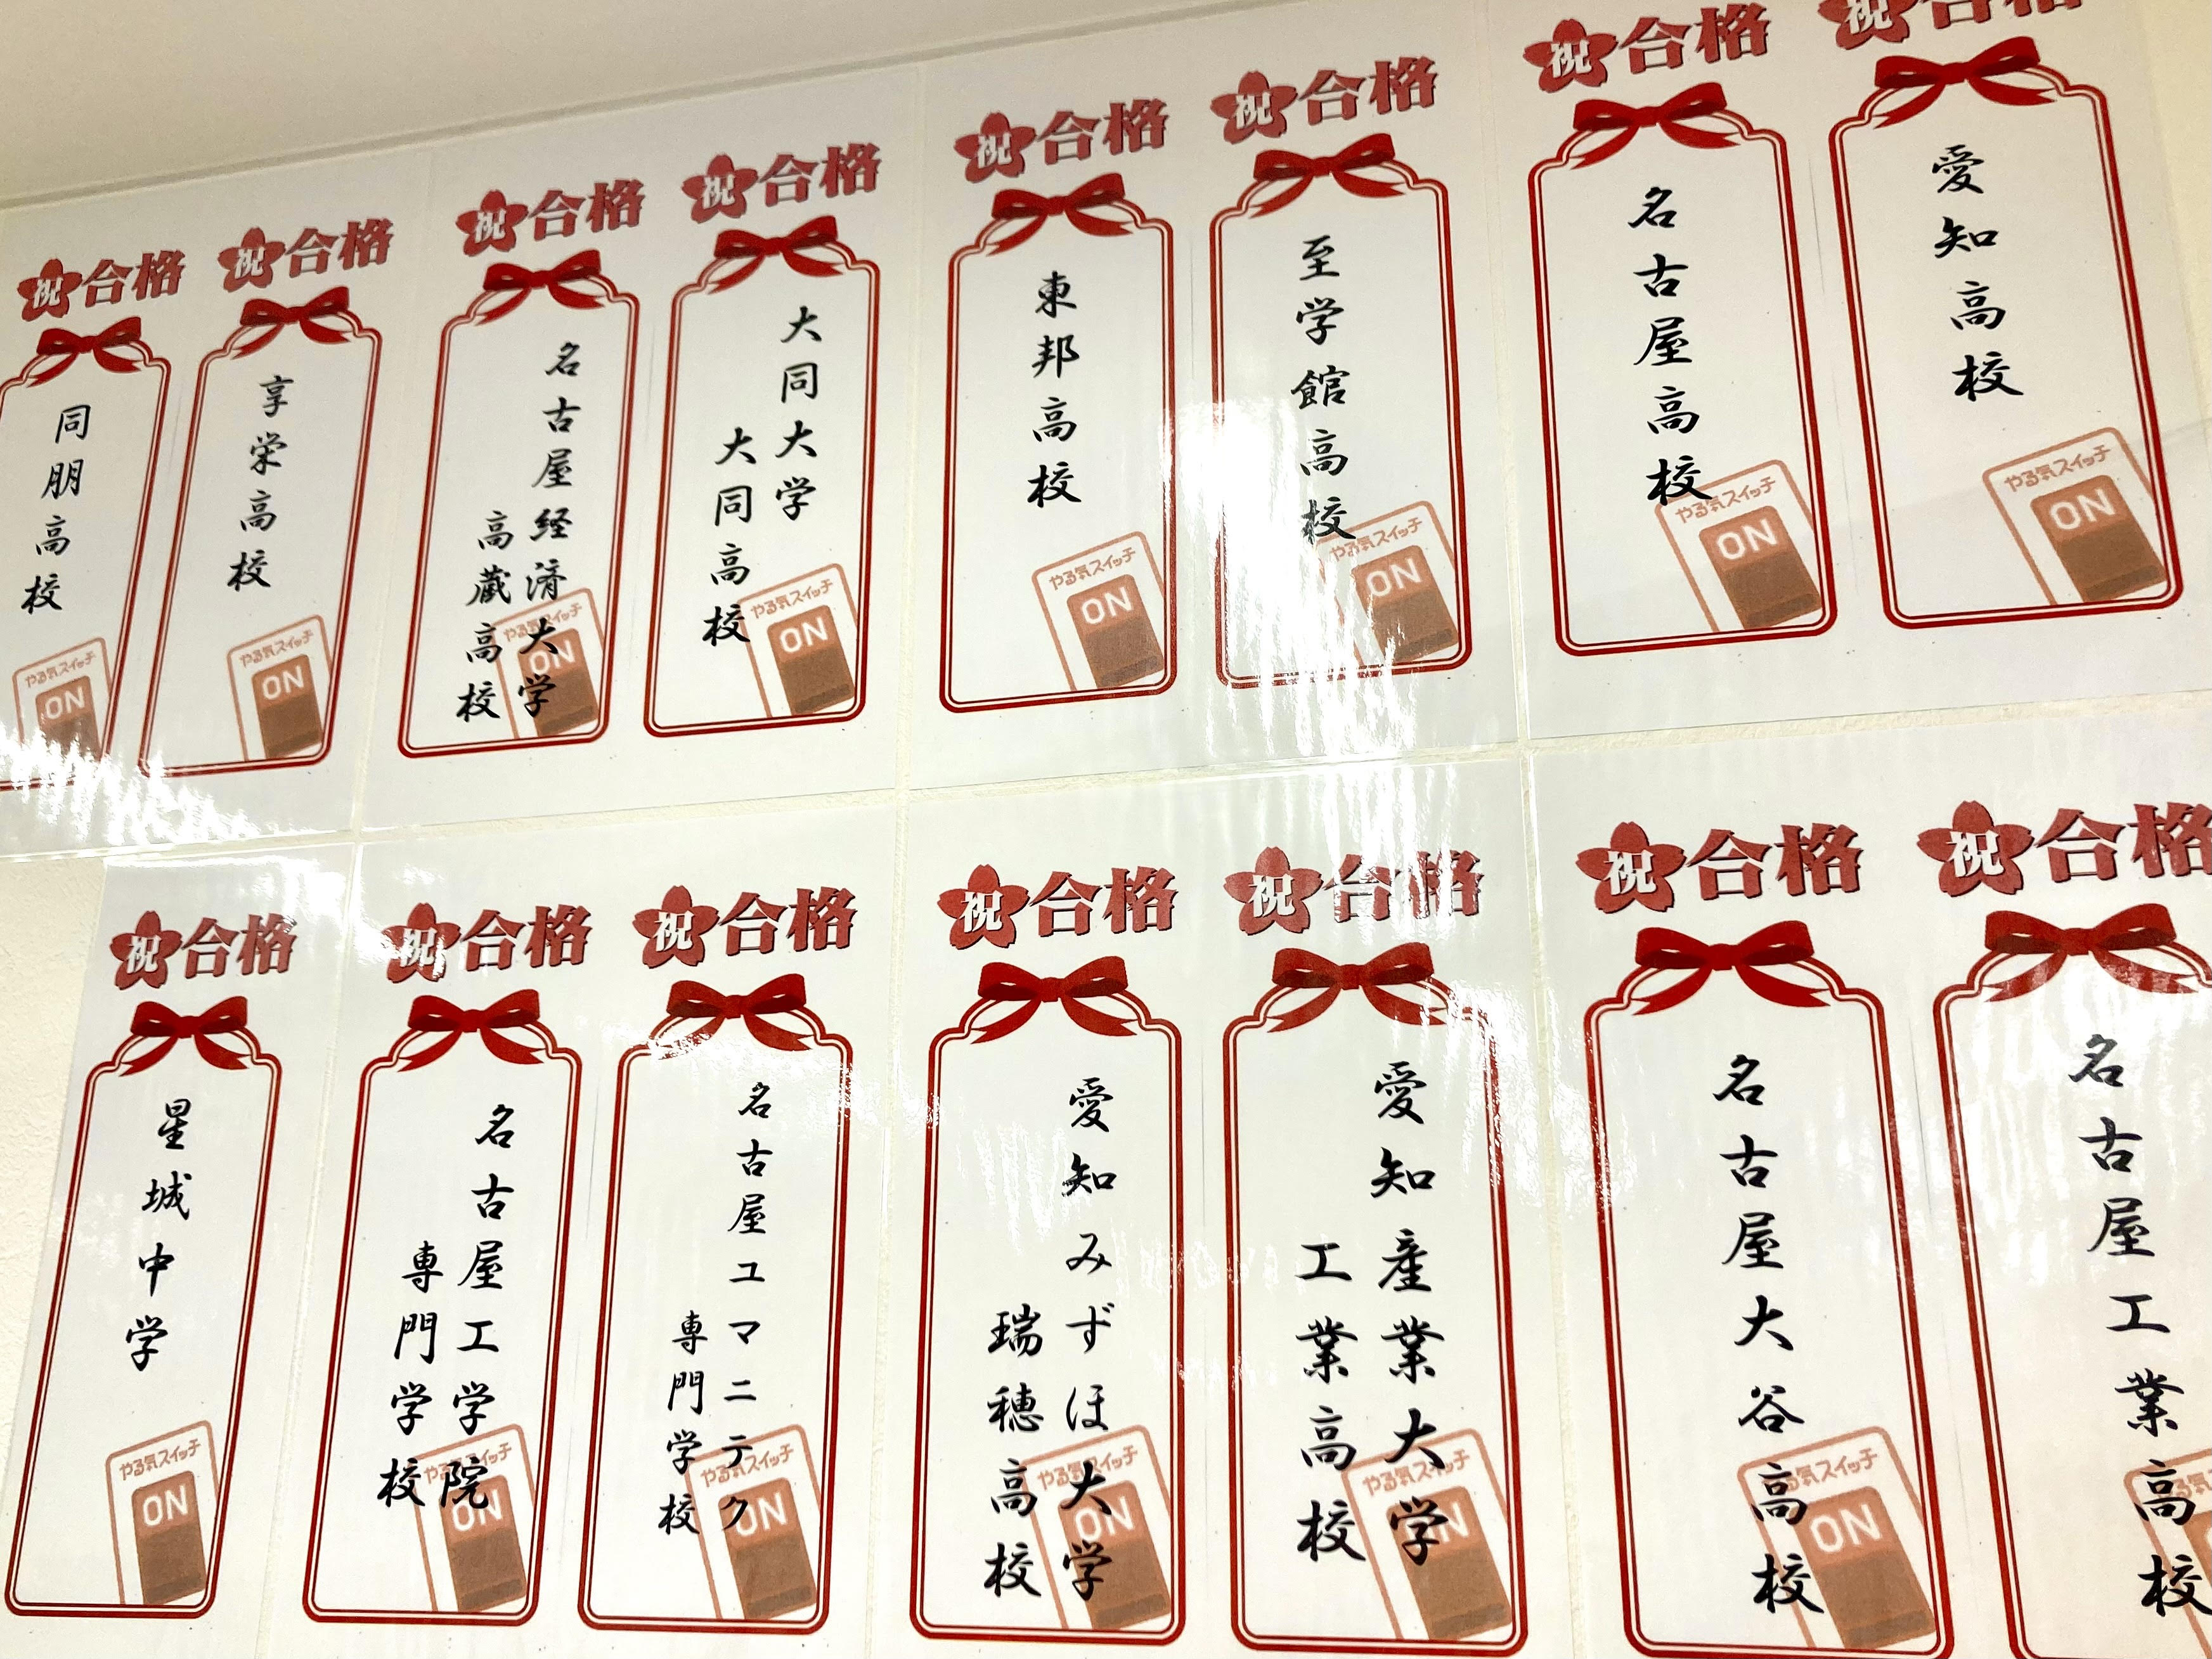 祝合格
愛知高校
やる気スイッチ
ON
祝合格
名古屋高校
やる気スイッチ
ON
祝合格
至学館高校
やる気スイッチ
ON
祝合格
東邦高校
やる気スイッチ
ON
祝合格
大同大学
大同高校
やる気スイッチ
ON
祝合格
名古屋経済大学
高蔵高校
やる気スイッチ
ON
祝合格
享栄高校
やる気スイッチ
ON
祝合格
同朋高校
やる気スイッチ
ON
祝合格
名古屋工業高校
祝合格
名古屋大谷高校
やる気スイッチ
ON
祝合格
愛知産業大学
工業高校
やる気スイッチ
ON
祝合格
愛知みずほ大学
瑞穂高校
やる気スイッチ
ON
祝合格
名古屋ユマニテク
専門学校
やる気スイッチ
ON
祝合格
名古屋工学院
専門学校
やる気スイッチ
ON
祝合格
星城中学
やる気スイッチ
ON